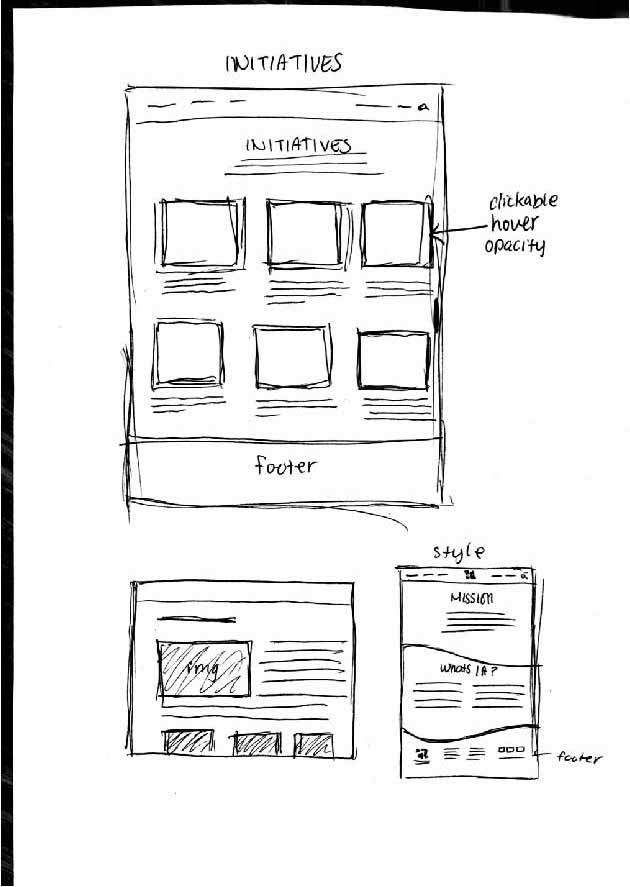 INITIATIVES
INITIATIVES
clickable
hover
opacity
footer
style
img
MISSION
WHATS IA?
footer